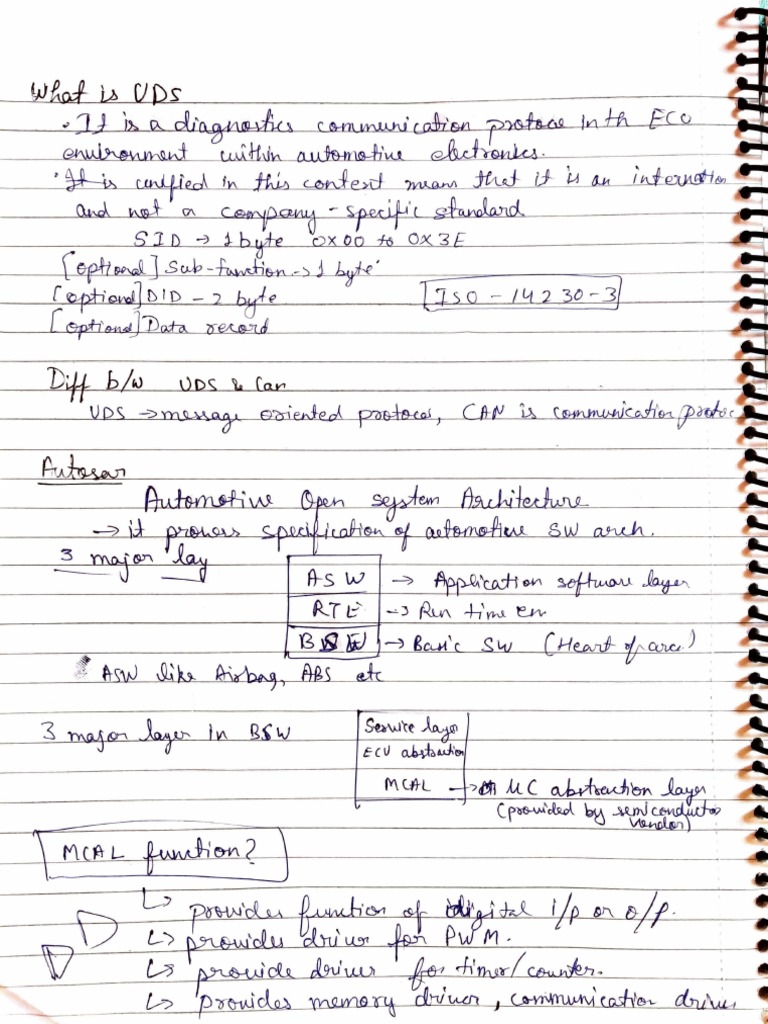 What is UDS
• It is a diagnostics communication protoce in th ECU
environment within automotive electronics.
• It is unified in this context means that it is an internation
and not a company-specific standard.
SID → 1 byte 0x00 to 0x3E
[optional] Sub-function → 1 byte
[optional] DID - 2 byte
ISO - 14230-3
[optional] Data record
Diff b/w UDS & Can
UDS → message oriented protocol, CAN is communication protoc
Autosar
Automotive Open system Architecture
→ it provers specification of automotive SW arch.
3 major lay
ASW → Application software layer
RTE → Run time en
BSW → Basic SW (Heart of arc)
ASW like Airbag, ABS etc
3 major layer in BSW
Service layer
ECU abstraction
MCAL → MC abstraction layer
(provided by semiconductor
vendor)
MCAL function?
↳ provides function of digital i/p or o/p.
↳ provides driver for PWM.
↳ provide driver for timer/counter.
↳ provides memory driver, communication driver